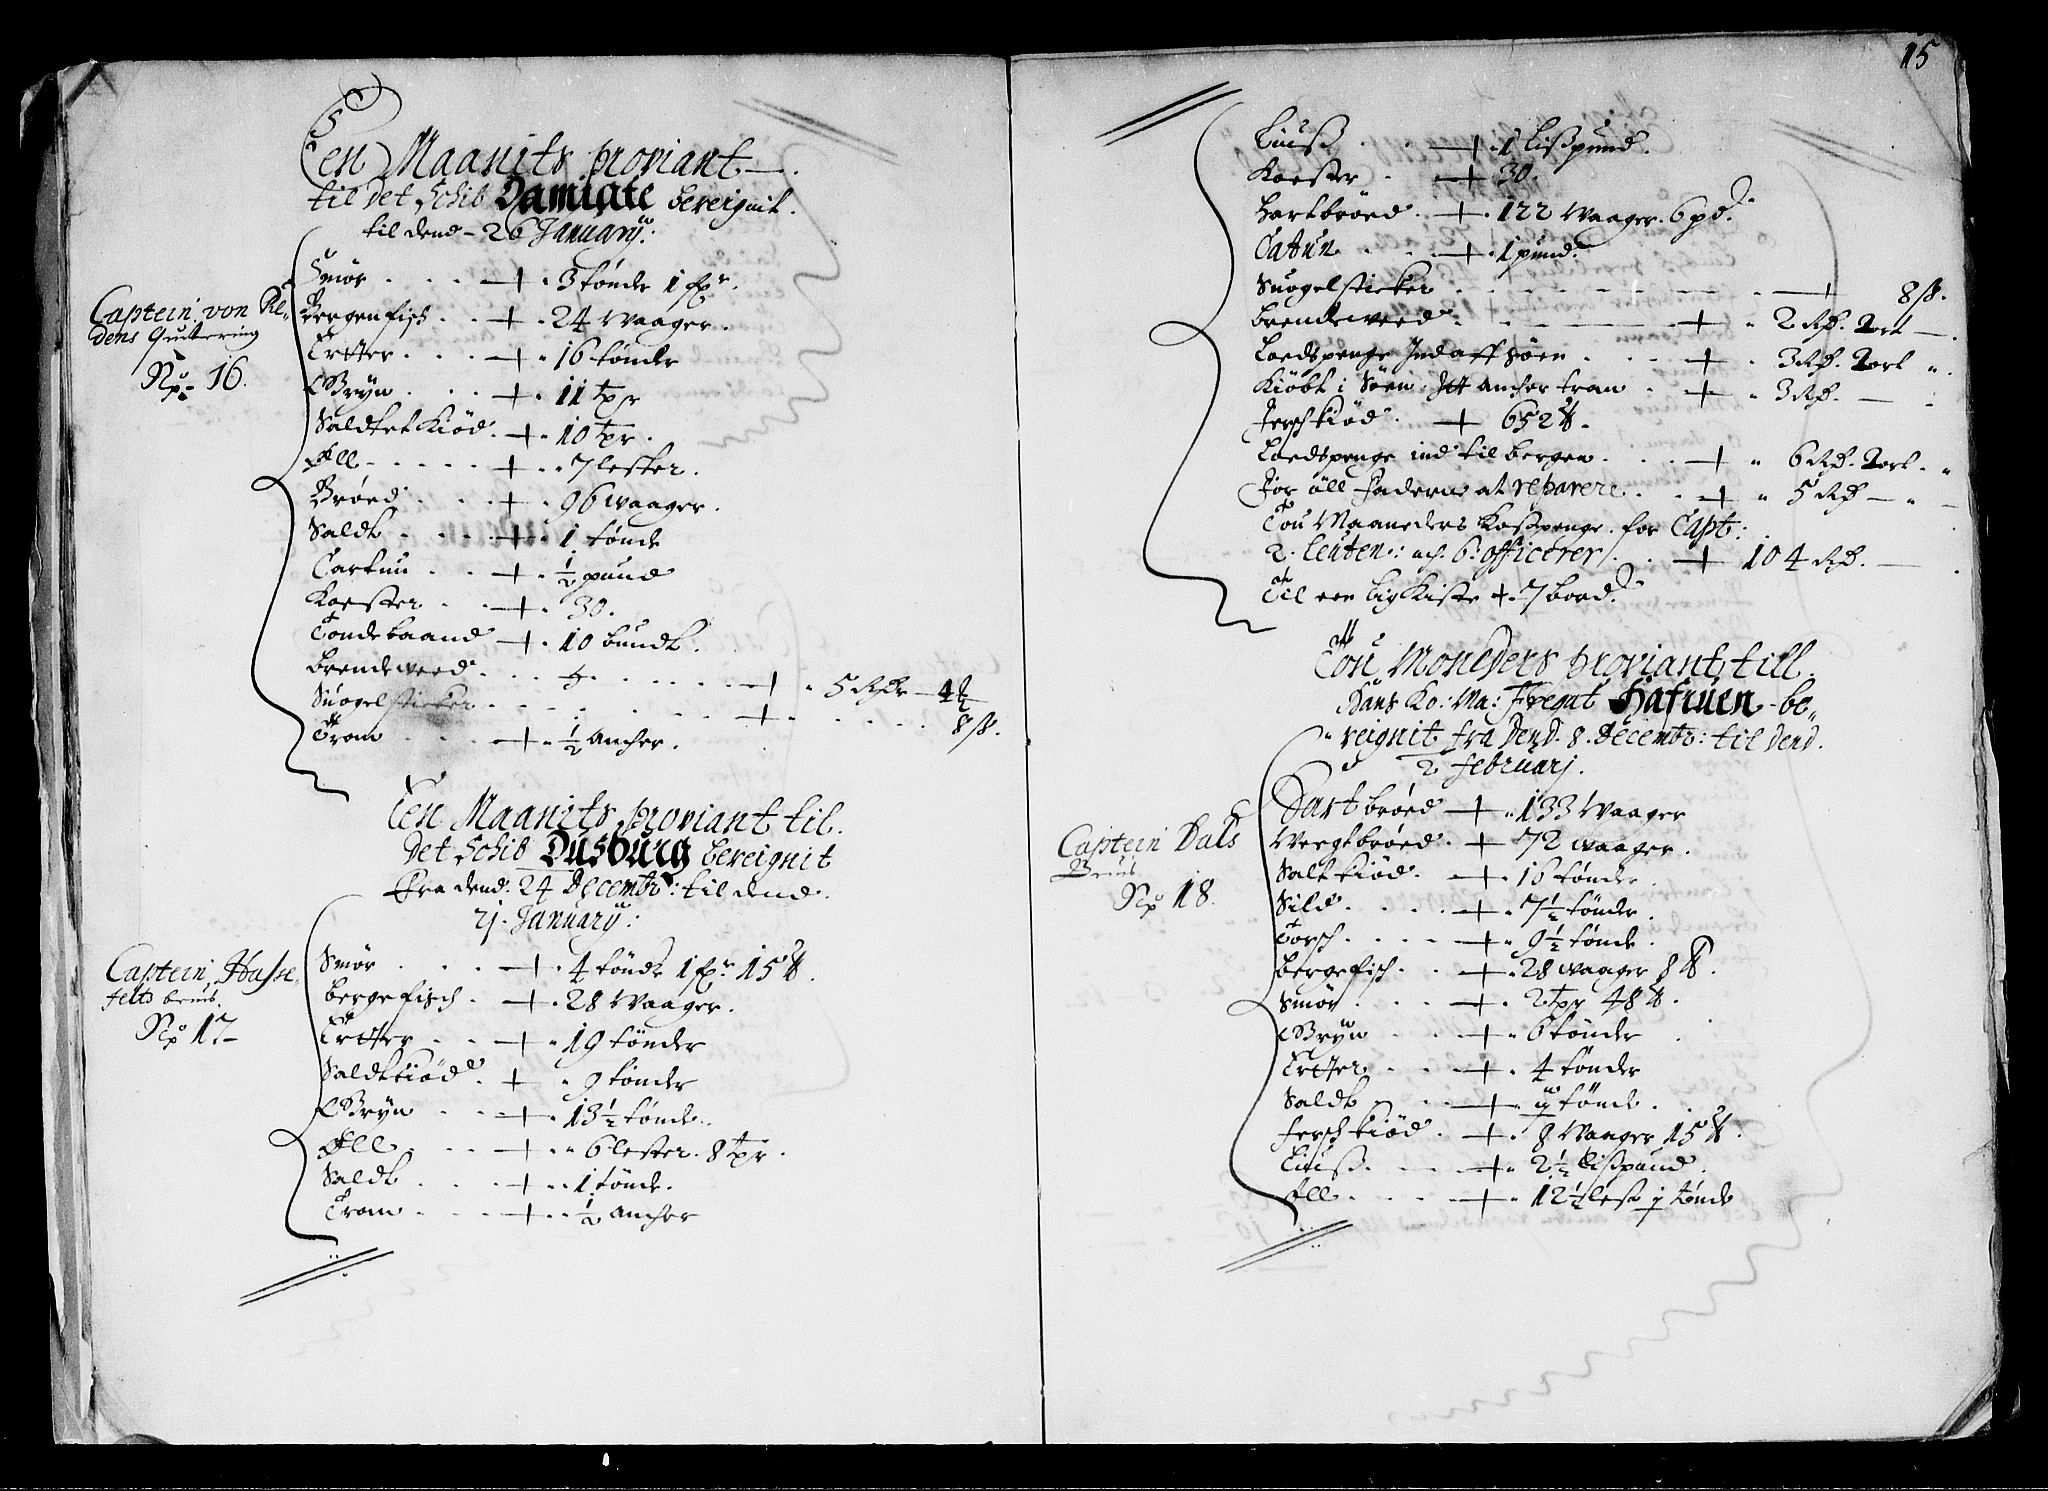 Een Maanits proviant
til det Schib Damiate bereignit
til dend 26 January:
Captein von Re-
dens Quitering
No 16.
Smör 3 tönde 1 fr.
Bergenfisch 24 Waager.
Ertter 16 tönder
Gryn 11 tr
Saldtet Kiöd 10 tr.
Öll 7 lester.
Bröed 96 waager.
Saldt 1 tönde
Cartun ½ pund
Koester 30.
Töndebaand 10 bundt.
brendeweed 5 Rdr
Suogelsticker 8 ß.
Tran ½ Ancher.
Een Maanits proviant til
det Schib Dusburg bereignit
Fra dend 24 Decembr: til dend
21. January:
Captein Hasse-
felts breus.
No 17
Smör 4 tönde 1 fr 15 ℔.
bergefisch 28 Waager.
Ertter 19 tönder
Saldtkiöd 9 tönder
Gryn 13½ tönde.
Öll 6 lester. 8 tr.
Saldt 1 tönde.
Tran ½ Ancher
15
Liuß 1 Lißpund.
Koester 30.
Hartbröed 122 Waager. 6 pd.
Catun 1 pund.
Suogelsticker 8 ß.
brendeweed 2 Rd. 2 ort
Loedspenge Ind aff Söen 3 Rd. 2 ort
Kiöbt i Söen Ancher tran 3 Rd.
Fersch kiöd 652 ℔.
Loedspenge ind til bergen 6 Rd. 2 ort.
For öll faderne at reparere 5 Rd
Tou Maaneders Kostpenge for Capt:
2. leuten: och 6. officerer 104 Rd.
Til een ligkiste 7 bord.
Tou Moneders proviant till
Hans Ko: Ma: Fregat Hafruen be-
reignit fra Dend. 8. Decembr: til dend.
2 februarj.
Captein Dals
Breus
No 18.
Hartbröed 133 Waager
Weegtbröed 72 waager.
Salt kiöd 16 tönder.
Sild 7½ tönde.
Torsch 9½ tönde.
bergefisch 28 waager 8 ℔.
Smör 2 tr 48 ℔.
Gryn 6 tönder
Ertter 4 tönder
Saldt tönde.
fersch kiöd 8 Waager 15 ℔.
Liuß 2½ lißpund.
Öll 12½ lest tönde